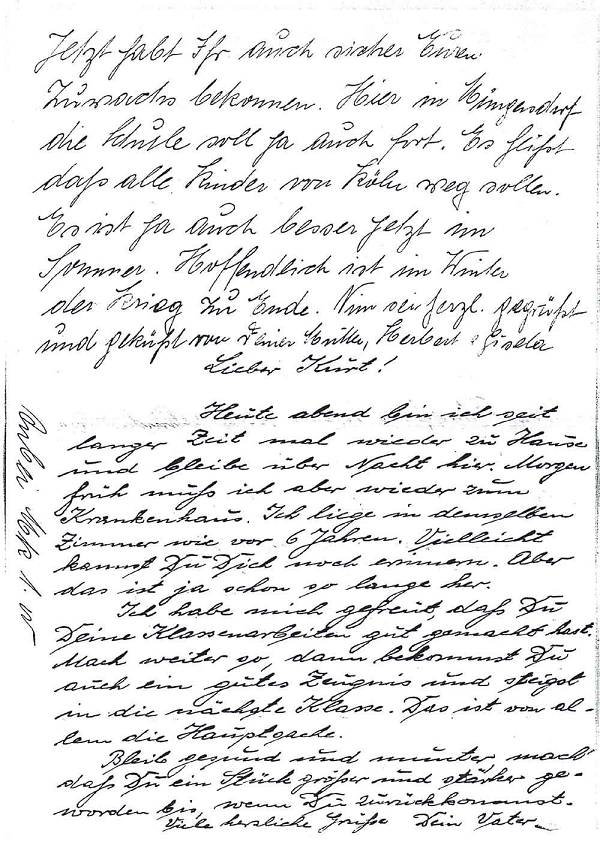 Jetzt habt Ihr auch sicher Euren
Zuwachs bekommen. Hier in Müngersdorf
die Schule soll ja auch fort. Es heißt
daß alle Kinder von Köln weg sollen.
Es ist ja auch besser jetzt im
Sommer. Hoffendlich ist im Winter
der Krieg zu Ende. Nun sei herzl. gegrüßt
und geküßt von Deiner Mutter, Herbert Gisela
Lieber Kurt!
Heute abend bin ich seit
langer Zeit mal wieder zu Hause
und bleibe über Nacht hier. Morgen
früh muß ich aber wieder zum
Krankenhaus. Ich liege in demselben
Zimmer wie vor 6 Jahren. Vielleicht
kannst Du Dich noch erinnern. Aber
das ist ja schon so lange her.
Ich habe mich gefreut, daß Du
Deine Klassenarbeiten gut gemacht hast.
Mach weiter so, dann bekommst Du
auch ein gutes Zeugnis und steigst
in die nächste Klasse. Das ist von al-
lem die Hauptsache.
Bleib gesund und munter, mach'
daß Du ein Stück größer und stärker ge-
worden bis, wenn Du zurückkommst.
Viele herzliche Grüße Dein Vater